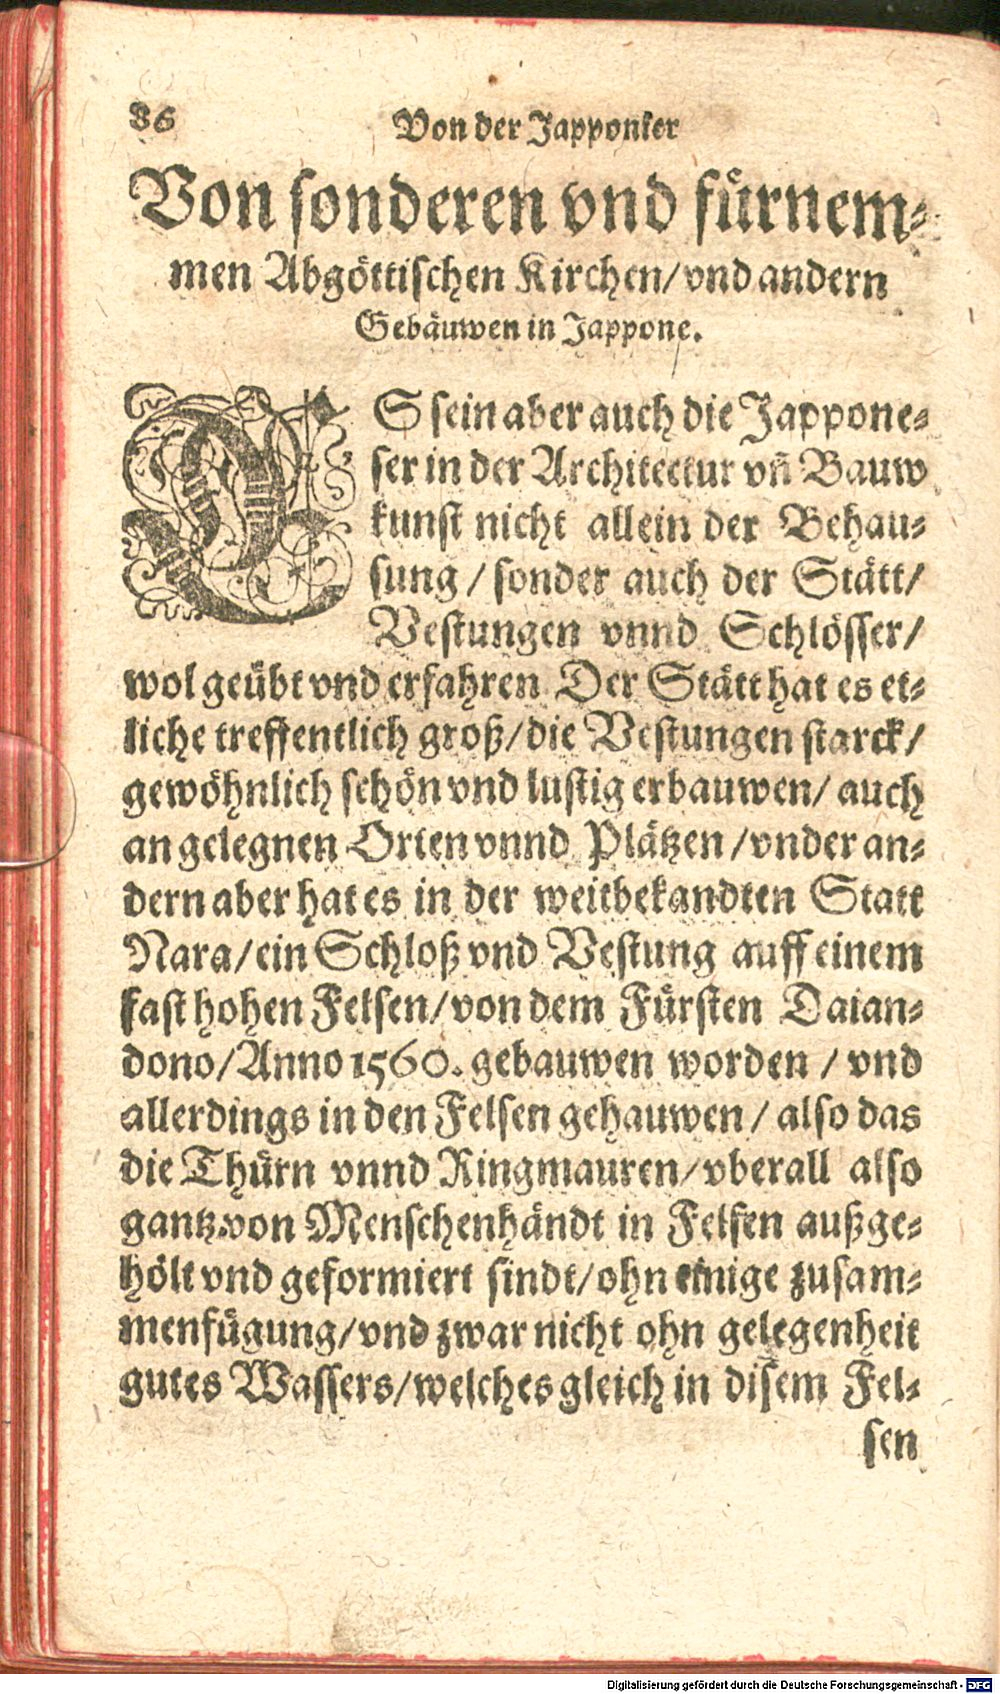 86 Von der Japponier
Von sonderen vnd fürnem-
men Abgöttischen Kirchen/ vnd andern
Gebäuwen in Jappone.
ES sein aber auch die Jappone-
ser in der Architectur vñ Bauw
kunst nicht allein der Behau-
sung / sonder auch der Stätt/
Vestungen vnnd Schlösser/
wol geübt vnd erfahren Der Stätt hat es et-
liche treffentlich groß/ die Vestungen starck/
gewöhnlich schön vnd lustig erbauwen/ auch
an gelegnen Orten vnnd Plätzen / vnder an-
dern aber hat es in der weitbekandten Statt
Nara/ ein Schloß vnd Vestung auff einem
fast hohen Felsen/ von dem Fürsten Daian-
dono/ Anno 1560. gebauwen worden / vnd
allerdings in den Felsen gehauwen/ also das
die Thürn vnnd Ringmauren/ vberall also
gantz von Menschenhändt in Felsen außge-
hölt vnd geformiert sindt/ ohn einige zusam-
menfügung/ vnd zwar nicht ohn gelegenheit
gutes Wassers/ welches gleich in disem Fel-
sen
Digitalisierung gefördert durch die Deutsche Forschungsgemeinschaft - DFG